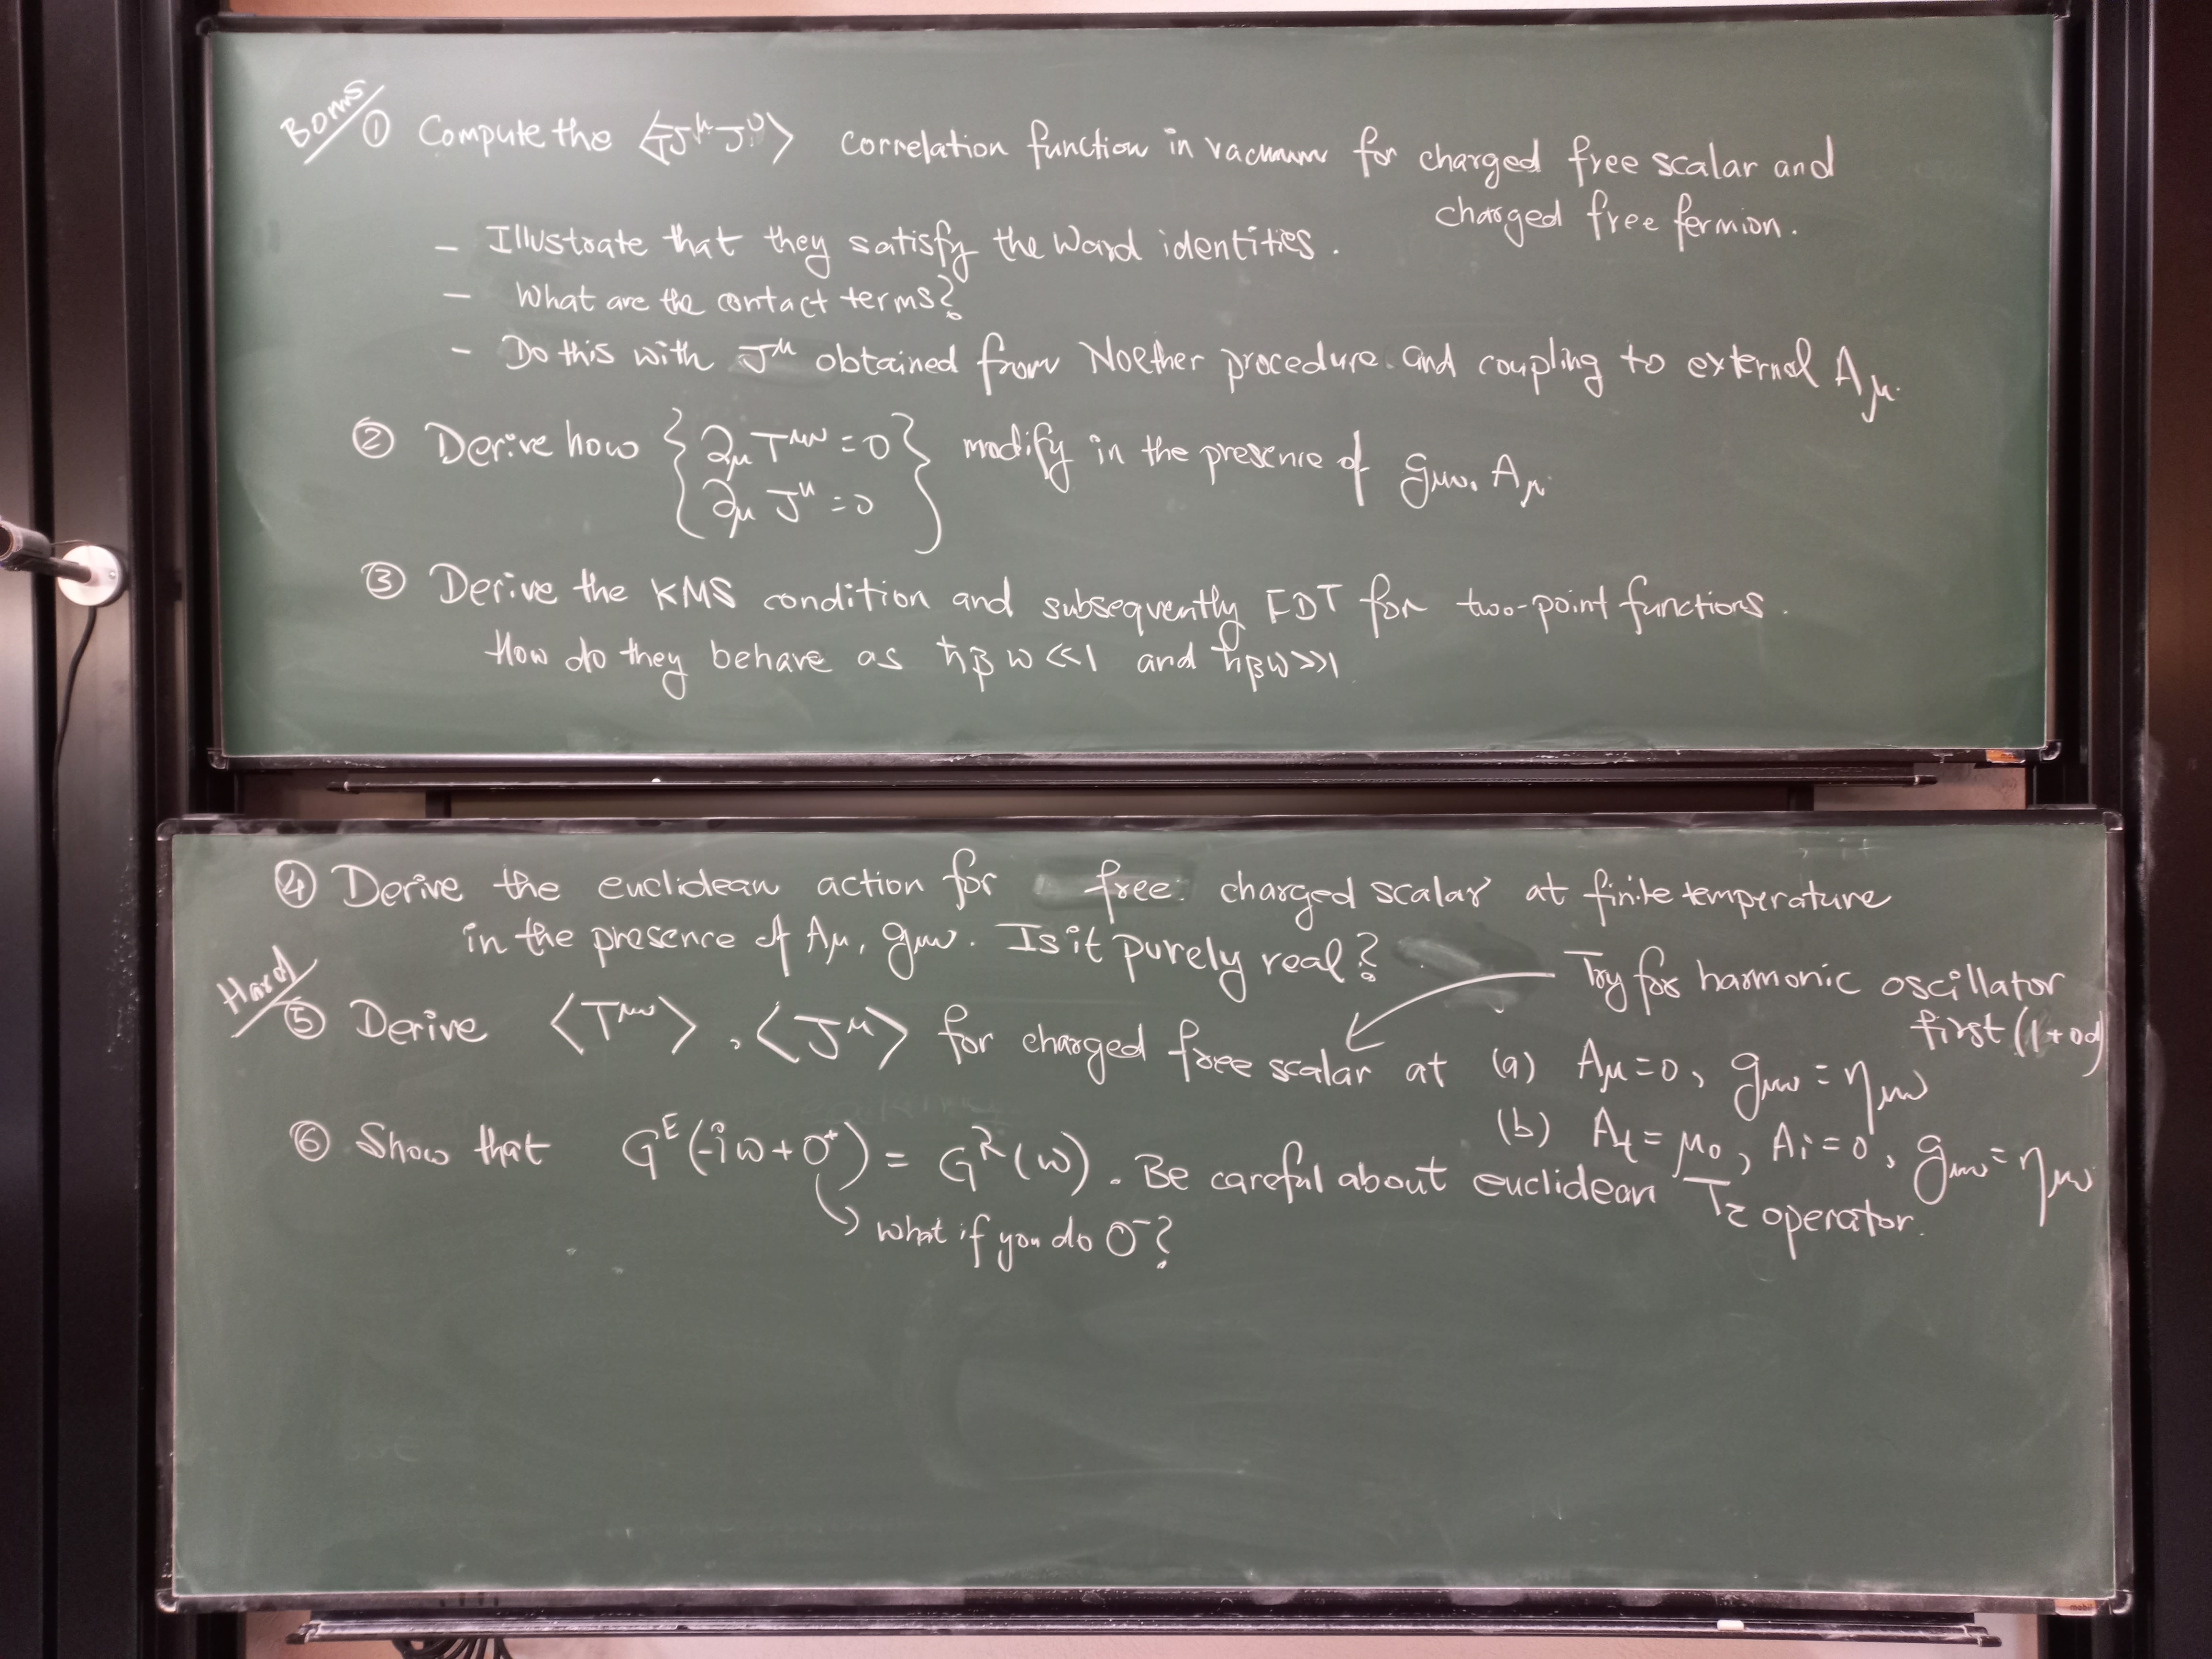 Bonus
① Compute the ⟨TJ^μ J^ν⟩ correlation function in vacuum for charged free scalar and
charged free fermion.
– Illustrate that they satisfy the Ward identities.
– What are the contact terms?
– Do this with J^μ obtained from Noether procedure and coupling to external A_μ.
② Derive how { ∂_μ T^μν = 0 } modify in the presence of g_μν, A_μ.
{ ∂_μ J^μ = 0 }
③ Derive the KMS condition and subsequently FDT for two-point functions.
How do they behave as ħβω ≪ 1 and ħβω ≫ 1.
④ Derive the euclidean action for free charged scalar at finite temperature
in the presence of A_μ, g_μν. Is it purely real?
Try for harmonic oscillator
first (1+0d)
Hard
⑤ Derive ⟨T^μν⟩, ⟨J^μ⟩ for charged free scalar at (a) A_μ = 0, g_μν = η_μν
(b) A_t = μ_0, A_i = 0, g_μν = η_μν
⑥ Show that G^E(-iω + 0^+) = G^R(ω). Be careful about euclidean T_τ operator.
what if you do 0^-?